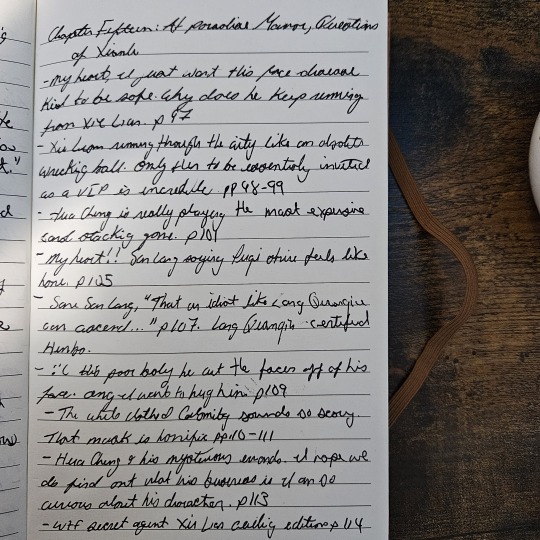 Chapter Fifteen: At Paradise Manor, Questions
of Xianle
- My heart, I just want this poor diseased
kid to be safe. Why does he keep running
from Xie Lian. p 97
- Xie Lian running through the city like an absolute
wrecking ball. Only then to be essentially invited
as a VIP is incredible. pp 98-99
- Hua Cheng is really playing the most expensive
card stacking game. p101
- My heart!! San Lang saying Puqi shrine feels like
home. p105
- Sans San Lang, "That an idiot like Lang Qianqiu
can ascend..." p107. Lang Qianqiu certified
Himbo.
- :'( this poor baby he cut the faces off of his
face. omg I want to hug him. p109
- The white clothed Calamity sounds so scary
That mask is horrific pp110-111
- Hua Cheng & his mysterious errands. I hope we
do find out what his business is I am so
curious about his character. p113
- WTF secret agent Xie Lian ceiling edition p114
"